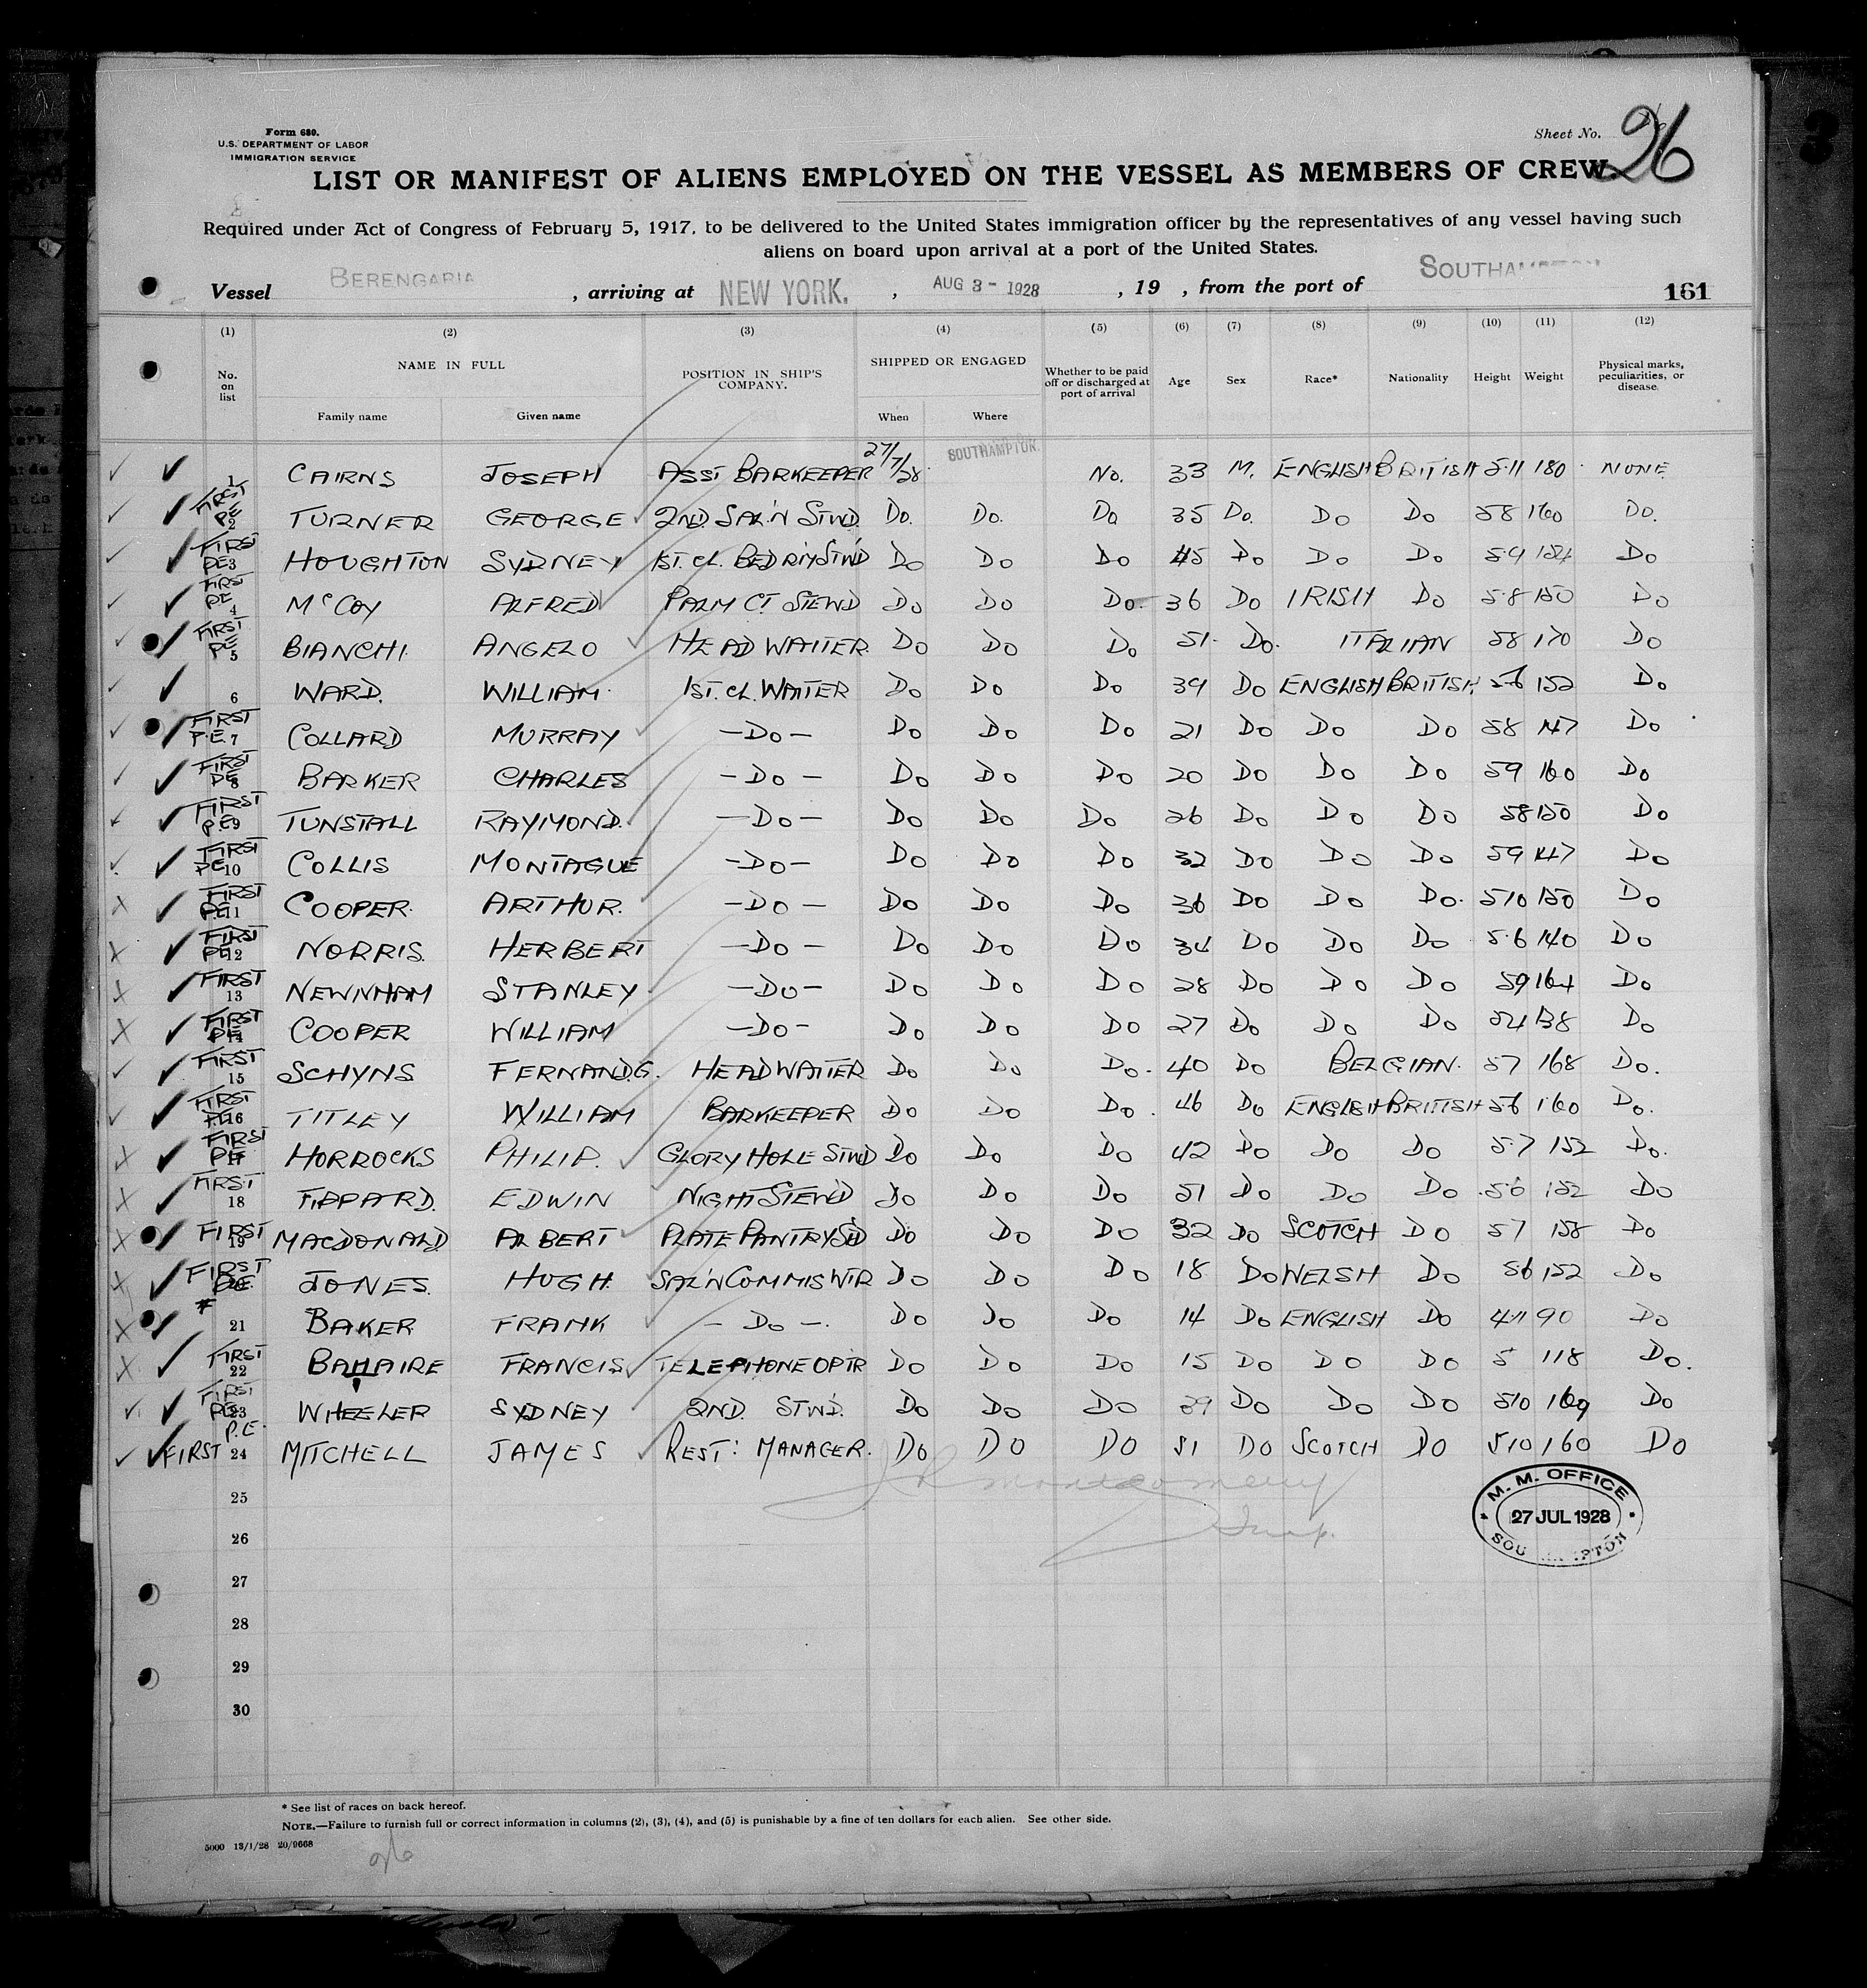 Form 680.
U.S. DEPARTMENT OF LABOR
IMMIGRATION SERVICE
Sheet No. 26
LIST OR MANIFEST OF ALIENS EMPLOYED ON THE VESSEL AS MEMBERS OF CREW
Required under Act of Congress of February 5, 1917, to be delivered to the United States immigration officer by the representatives of any vessel having such
aliens on board upon arrival at a port of the United States.
Vessel BERENGARIA, arriving at NEW YORK., AUG 3 - 1928, 19 , from the port of SOUTHAMPTON
161
(1) (2) (3) (4) (5) (6) (7) (8) (9) (10) (11) (12)
No. on list NAME IN FULL POSITION IN SHIP'S COMPANY. SHIPPED OR ENGAGED Whether to be paid off or discharged at port of arrival Age Sex Race* Nationality Height Weight Physical marks, peculiarities, or disease.
Family name Given name When Where
1 CAIRNS JOSEPH ASST BARKEEPER 27/7/28 SOUTHAMPTON. No. 33 M. ENGLISH BRITISH 5.11 180 NONE
FIRST PE 2 TURNER GEORGE 2ND. SAL'N STWD. Do. Do. Do 35 Do. Do Do 58 160 Do.
FIRST PE 3 HOUGHTON SYDNEY 1ST. CL. BEDR'M STW'D Do Do Do 45 Do Do Do 59 154 Do
FIRST PE 4 McCOY ALFRED PALM CT STEWD Do Do Do. 36 Do IRISH Do 5.8 150 Do
FIRST PE 5 BIANCHI ANGELO HEAD WAITER Do Do Do 51. Do. ITALIAN 58 170 Do
6 WARD. WILLIAM. 1ST. CL. WAITER Do Do Do 39 Do ENGLISH BRITISH 5.6 152 Do
FIRST P.E. 7 COLLARD MURRAY -Do- Do Do Do 21 Do Do Do 58 147 Do
FIRST PE 8 BARKER CHARLES -Do- Do Do Do 20 Do Do Do 59 160 Do
FIRST P.E 9 TUNSTALL RAYMOND. -Do- Do Do Do 26 Do Do Do 58 150 Do
FIRST PE 10 COLLIS MONTAGUE -Do- Do Do Do 32 Do Do Do 59 147 Do
FIRST PE 11 COOPER. ARTHUR. -Do- Do Do Do 36 Do Do Do. 510 150 Do
FIRST PE 12 NORRIS. HERBERT -Do- Do Do Do 34 Do Do Do 5.6 140 Do
FIRST 13 NEWNHAM STANLEY -Do- Do Do Do 28 Do Do Do 59 164 Do
FIRST PE 14 COOPER WILLIAM -Do- Do Do Do 27 Do Do Do 54 138 Do
FIRST 15 SCHYNS FERNAND.G. HEAD WAITER Do Do Do. 40 Do BELGIAN. 57 168 Do.
FIRST P.E 16 TITLEY WILLIAM BARKEEPER Do Do Do. 46 Do ENGLISH BRITISH 56 160 Do.
FIRST PE 17 HORROCKS PHILIP. GLORY HOLE STWD Do Do Do 42 Do Do Do 5.7 152 Do.
FIRST 18 TIPPARD. EDWIN NIGHT STEW'D Do Do Do 51 Do Do Do 56 152 Do
FIRST 19 MACDONALD. ALBERT PLATE PANTRY S'D Do Do Do 32 Do SCOTCH Do 57 158 Do
FIRST PE. 20 JONES. HUGH. SAL'N COMMIS WTR Do Do Do 18 Do WELSH Do 56 152 Do
# 21 BAKER FRANK - Do -. Do Do Do 14 Do ENGLISH Do 4.11 90 Do
FIRST 22 BAHAIRE FRANCIS TELEPHONE OPTR Do Do Do 15 Do Do Do 5 118 Do.
FIRST PE 23 WHEELER SYDNEY 2ND. STWD. Do Do Do 39 Do Do Do 510 169 Do
FIRST P.E. 24 MITCHELL JAMES REST: MANAGER. Do Do Do 51 Do SCOTCH Do 510 160 Do
Montgomery
25
26
27
28
29
30
M. M. OFFICE
27 JUL 1928
* See list of races on back hereof.
NOTE.—Failure to furnish full or correct information in columns (2), (3), (4), and (5) is punishable by a fine of ten dollars for each alien. See other side.
5000 13/1/28 20/9668
26